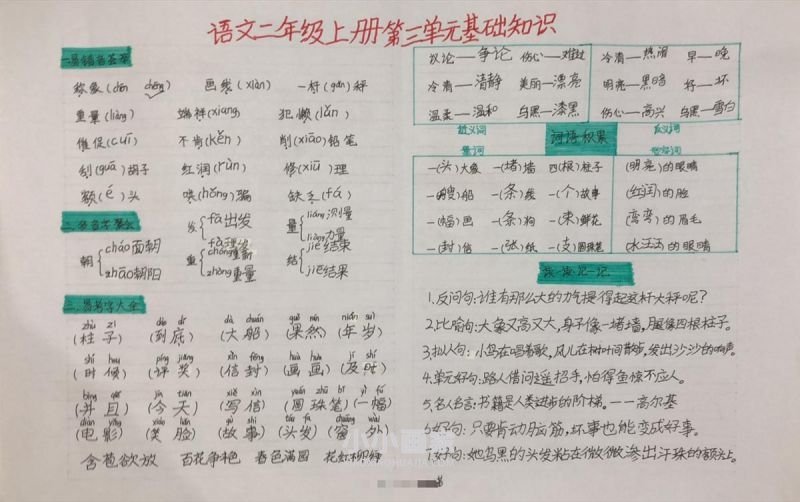 语文二年级上册第三单元基础知识
称象(chēn chēng) 画线(xiàn) 一杆(gǎn)秤
重量(liàng) 端祥(xiang) 犯懒(lǎn)
催促(cuī) 不肯(kěn) 削(xiāo)铅笔
刮(guā)胡子 红润(rùn) 修(xiū)理
额(é)头 哄(hǒng)骗 缺乏(fá)
朝 cháo面朝 zhāo朝阳
发 fā出发 fà理发
重 chóng重新 zhòng重量
量 liáng测量 liàng力量
结 jié结束 jiē结果
三.易考字大全
zhù zi dào dǐ dà chuán guǒ rán nián suì
(柱子) (到底) (大船) (果然) (年岁)
shí hou píng jiǎng xìn fēng huà huà jí shí
(时候) (评奖) (信封) (画画) (及时)
bìng qiě jīn tiān xiě xìn yuán zhū bǐ yì fú
(并且) (今天) (写信) (圆珠笔) (一幅)
diàn yǐng xiào liǎn gù shi tóu fa chuāng wài
(电影) (笑脸) (故事) (头发) (窗外)
含苞欲放 百花争艳 春色满园 花红柳绿
议论——争论 伤心——难过 冷清——热闹 早——晚
冷清——清静 美丽——漂亮 明亮——黑暗 好——坏
温柔——温和 乌黑——漆黑 伤心——高兴 乌黑——雪白
近义词 词语积累 反义词
量词
一(头)大象 一(堵)墙 四(根)柱子 (明亮)的眼睛
一(艘)船 一(条)线 一(个)故事 (红润)的脸
一(幅)画 一(条)狗 一(束)鲜花 (弯弯)的眉毛
一(封)信 一(张)纸 一(支)圆珠笔 (水汪汪)的眼睛
读一读记一记
1.反问句:谁有那么大的力气提得起这杆大秤呢?
2.比喻句:大象又高又大,身子像一堵墙,腿像四根柱子。
3.拟人句:小鸟在唱着歌,风儿在树叶间散步,发出沙沙的响声。
4.单元好句:路人借问遥招手,怕得鱼惊不应人。
5.名人名言:书籍是人类进步的阶梯。——高尔基
6.好句:只要肯动脑筋,坏事也能变成好事。
7.好句:她乌黑的头发粘在微微渗出汗珠的额头上。